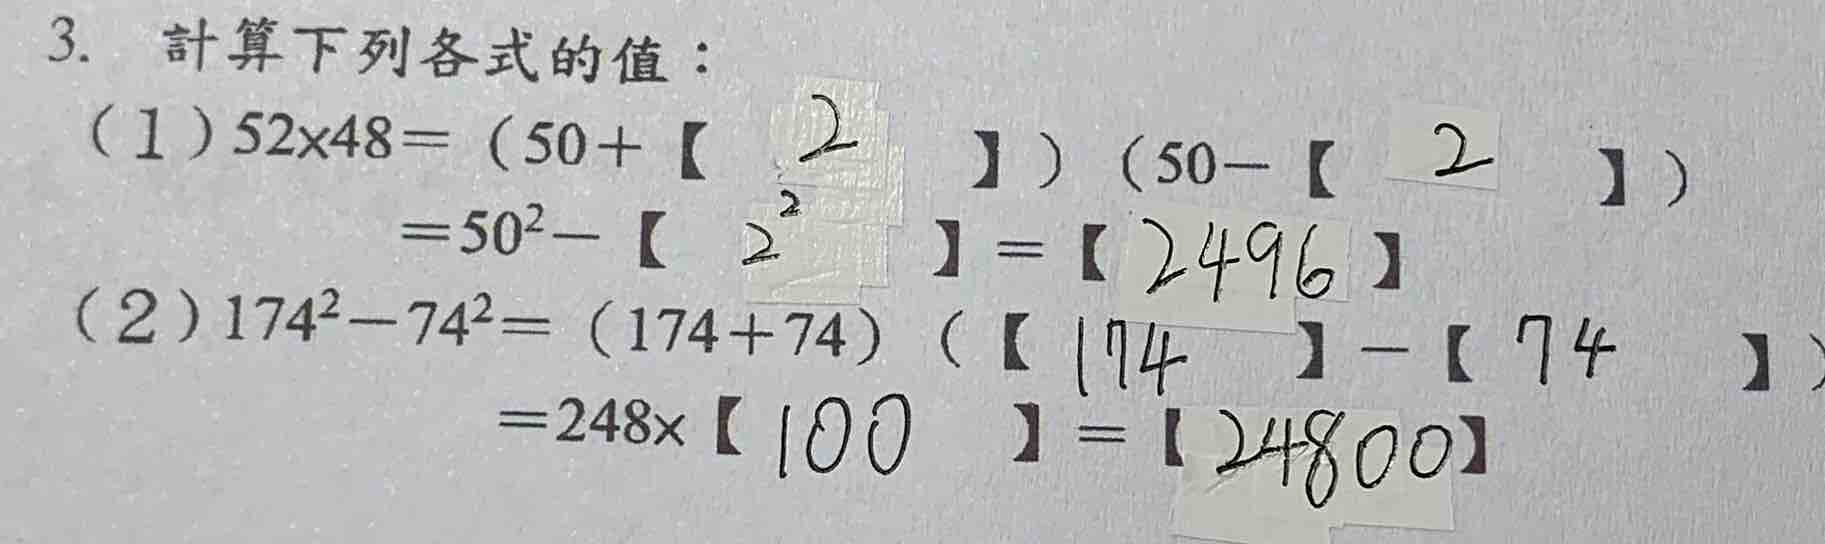 3. 計算下列各式的值：
（1）52x48=（50+【 2 】）（50-【 2 】）
=50²-【 2² 】=【 2496 】
（2）174²-74²=（174+74）（【 174 】-【 74 】）
=248x【 100 】=【 24800】